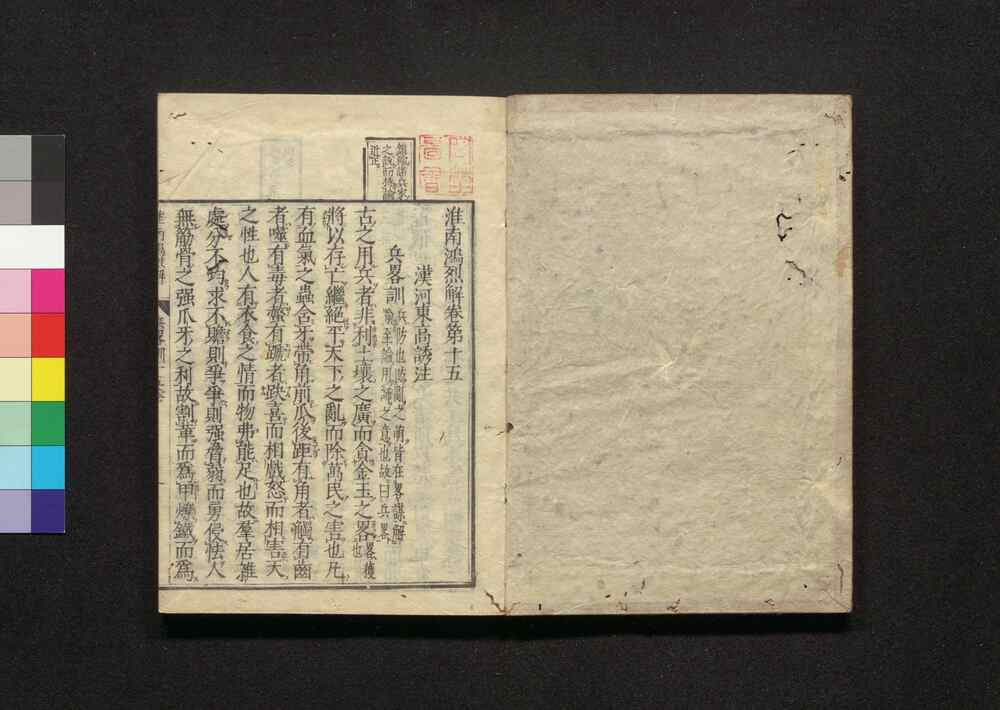 淮南鴻烈解卷第十五
漢河東高誘注
兵畧訓 兵防也防亂之萌皆在畧謀解
喩至論用師之意也故曰兵畧
古之用兵者非利土壤之廣而貪金玉之畧畧獲也
將以存亡繼絕平天下之亂而除萬民之害也凡
有血氣之蟲含牙帶角前爪後距有角者觸有齒
者噬有毒者螫有蹏者趹喜而相戲怒而相害天
之性也人有衣食之情而物弗能足也故羣居雜
處分不均求不贍則爭爭則强脅弱而勇侵怯人
無筋骨之强爪牙之利故割革而爲甲爍鐵而爲